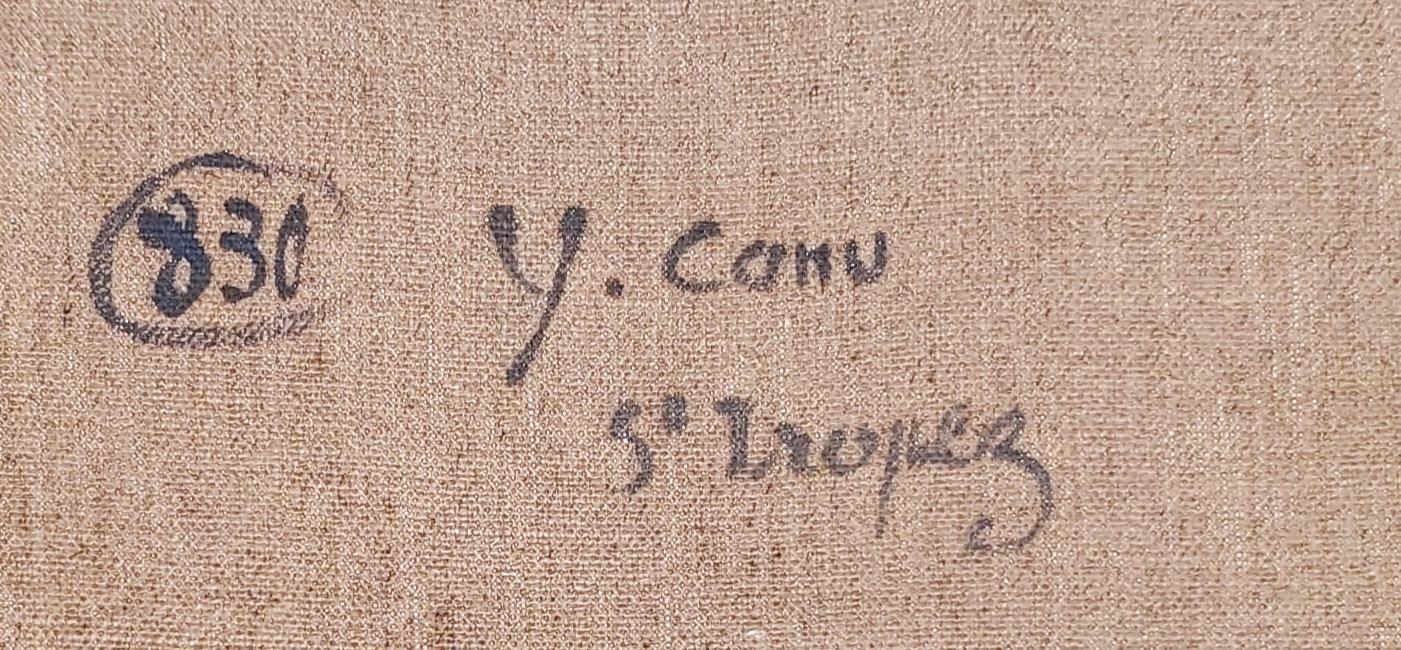 830 Y. Canu
St Tropez